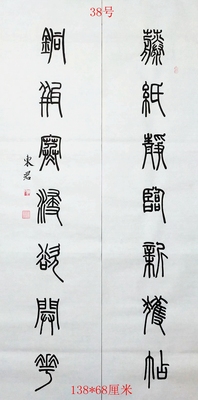 38号
藤紙静臨新獲帖
銅瓶寒浸欲開花
東君
138*68厘米